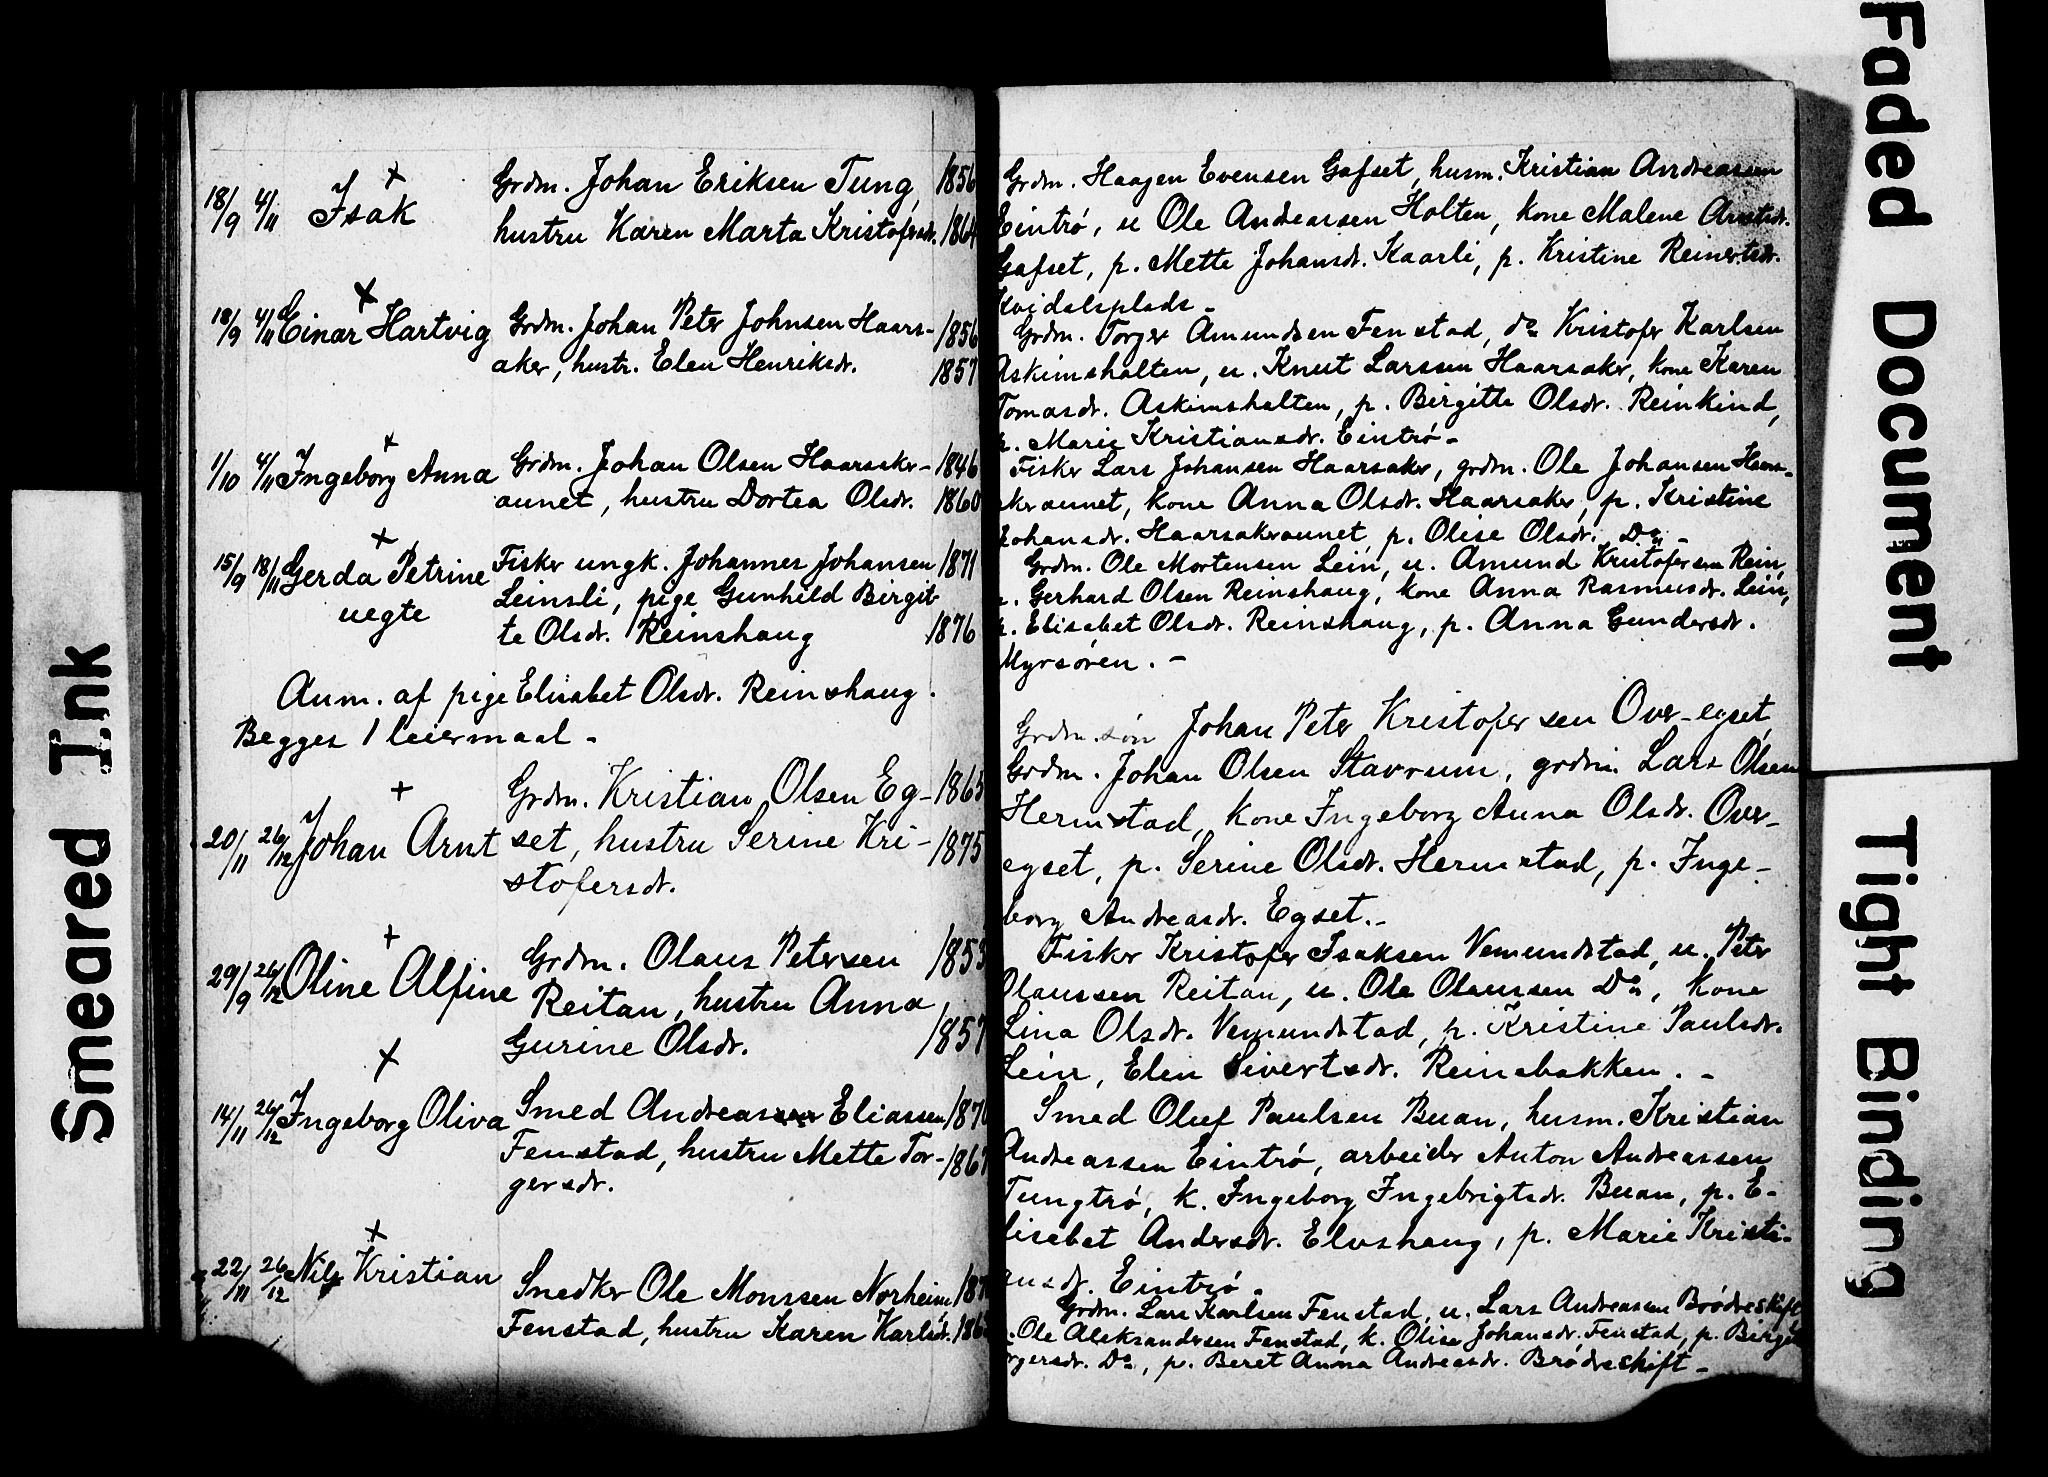 18/9 4/11 Isak
Grdm. Johan Eriksen Tung, 1856
hustru Karen Marta Kristofersdr. 1864
18/9 4/11 Einar Hartvig
Grdm. Johan Peter Johnsen Haars- 1856
aker, hustr. Elen Henriksdr. 1857
1/10 4/11 Ingeborg Anna
Grdm. Johan Olsen Haarsaker- 1846
aunet, hustru Dortea Olsdr. 1860
15/9 18/11 Gerda Petrine
uegte
Fisker ungk. Johannes Johansen 1871
Leinsli, pige Gunhild Birgit-
te Olsdr. Reinshaug 1876
Anm. af pige Elisabet Olsdr. Reinshaug.
Begges 1 leiermaal -
20/11 26/12 Johan Arnt
Grdm. Kristian Olsen Eg- 1865
set, hustru Serine Kri- 1875
stofersdr.
29/9 26/12 Oline Alfine
Grdm. Olaus Petersen 1853
Reitan, hustru Anna
Gurine Olsdr. 1857
14/11 26/12 Ingeborg Oliva
Smed Andreas Eliassen 1870
Fenstad, hustru Mette Tor- 1867
gersdr.
22/11 26/12 Nils Kristian
Snedker Ole Monssen Norheim
Fenstad, hustru Karen Karlsdr.
Grdm. Haagen Evensen Gafset, husm. Kristian Andreassen
Eintrø, u Ole Andreassen Holten, kone Malene Arntsdr.
Gafset, p. Mette Johansdr. Kaarli, p. Kristine Reinertsdr.
Kvidalsplads -
Grdm. Torger Amundsen Fenstad, do Kristofer Karlsen
Askimsholten, u. Knut Larssen Haarsaker, kone Karen
Tomasdr. Askimsholten, p. Birgitte Olsdr. Reinkind,
p. Marie Kristiansdr. Eintrø -
Fisker Lars Johansen Haarsaker, grdm. Ole Johansen Haars-
akeraunet, kone Anna Olsdr. Haarsaker, p. Kristine
Johansdr. Haarsakeraunet, p. Olise Olsdr. Do -
Grdm. Ole Mortensen Lein, u. Amund Kristofersen Rein,
u. Gerhard Olsen Reinshaug, kone Anna Rasmusdr. Lein,
p. Elisabet Olsdr. Reinshaug, p. Anna Gundersdr.
Myrsøren. -
Grdm.søn Johan Peter Kristofersen Over-egset,
Grdm. Johan Olsen Stavrum, grdm. Lars Olsen
Hermstad, kone Ingeborg Anna Olsdr. Over-
egset, p. Serine Olsdr. Hermstad, p. Inge-
borg Andreasdr. Egset. -
Fisker Kristofer Isaksen Vemundstad, u. Peter
Olaussen Reitan, u. Ole Olaussen Do, kone
Lina Olsdr. Vemundstad, p. Kristine Paulsdr.
Lein, Elen Sivertsdr. Reinsbakken. -
Smed Oluf Paulsen Buan, husm. Kristian
Andreassen Eintrø, arbeider Anton Andreassen
Tungtrø, k. Ingeborg Ingebrigtsdr. Buan, p. E-
lisabet Andersdr. Elvshaug, p. Marie Kristi-
ansdr. Eintrø -
Grdm. Lars Karlsen Fenstad, u. Lars Andreasen Brødreskift
u. Ole Aleksandersen Fenstad, k. Olise Johansdr. Fenstad, p. Birgit
Torgersdr. Do, p. Beret Anna Andreasdr. Brødreskift -
Smeared Ink
Faded Document
Tight Binding